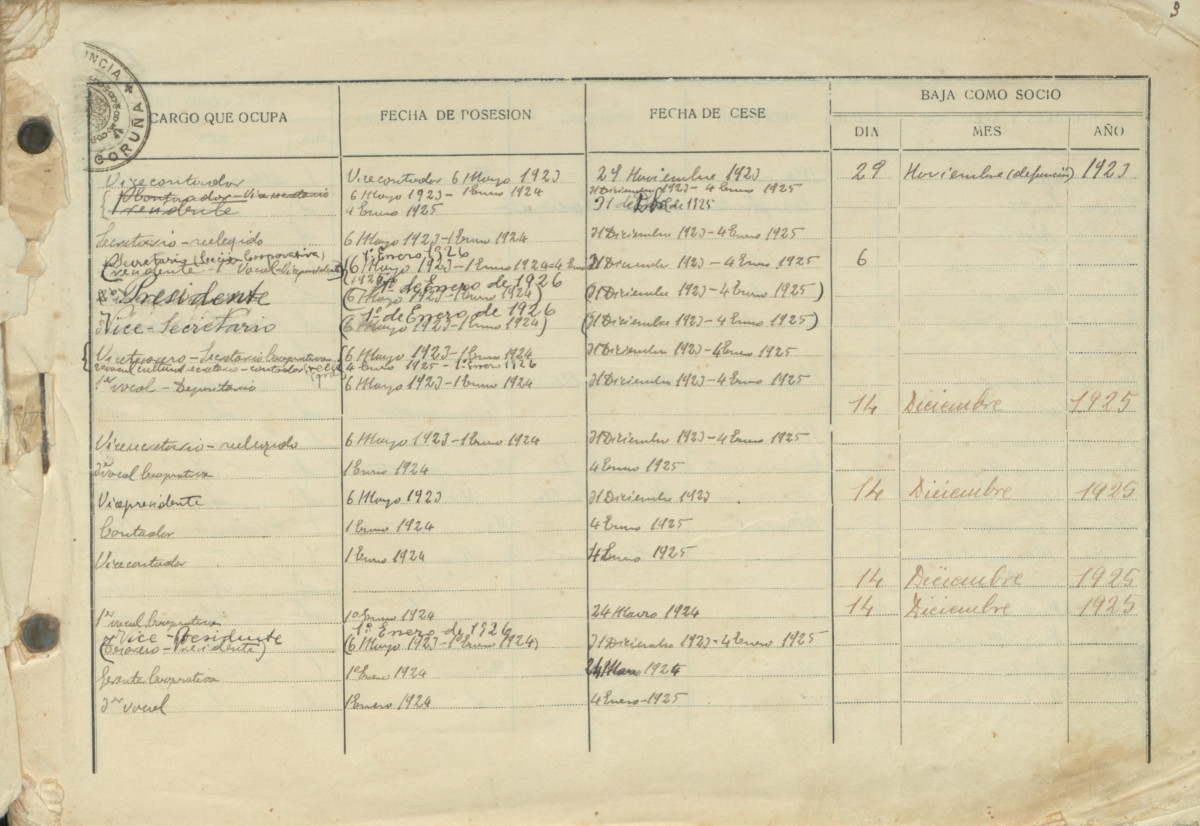 3
CARGO QUE OCUPA FECHA DE POSESION FECHA DE CESE BAJA COMO SOCIO
DIA MES AÑO
CORUÑA
Vicecontador Vicecontador 6 Mayo 1923 29 Noviembre 1923 29 Noviembre (defunción) 1923
Contador - Vicesecretario 6 Mayo 1923 - 1 Enero 1924 31 Diciembre 1923 - 4 Enero 1925
Presidente 4 Enero 1925 31 de de 1925
Secretario - reelegido 6 Mayo 1923 - 1 Enero 1924 31 Diciembre 1923 - 4 Enero 1925
Secretario (Sección Cooperativa) 1º Enero 1926
(Presidente - 1º Vocal 6 Mayo 1923 - 1 Enero 1924 - 4 Enero 31 Diciembre 1923 - 4 Enero 1925 6
Presidente 1º de Enero de 1926
(6 Mayo 1923 - 1 Enero 1924) (31 Diciembre 1923 - 4 Enero 1925)
Vice-Secretario 1º de Enero de 1926
(6 Mayo 1923 - 1 Enero 1924) (31 Diciembre 1923 - 4 Enero 1925)
Vicetesorero - Secretario Cooperativa 6 Mayo 1923 - 1 Enero 1924 31 Diciembre 1923 - 4 Enero 1925
secretario - contador 4 Enero 1925 - 1º Enero 1926
1er vocal - Depositario 6 Mayo 1923 - 1 Enero 1924 31 Diciembre 1923 - 4 Enero 1925
14 Diciembre 1925
Vicesecretario - reelegido 6 Mayo 1923 - 1 Enero 1924 31 Diciembre 1923 - 4 Enero 1925
3er vocal Cooperativa 1 Enero 1924 4 Enero 1925
Vicepresidente 6 Mayo 1923 31 Diciembre 1923 14 Diciembre 1925
Contador 1 Enero 1924 4 Enero 1925
Vicecontador 1 Enero 1924 4 Enero 1925
14 Diciembre 1925
1er vocal Cooperativa 1º Enero 1924 24 Marzo 1924 14 Diciembre 1925
Vice-Presidente 1º Enero de 1926
(Tesorero - Presidente) (6 Mayo 1923 - 1º Enero 1924) 31 Diciembre 1923 - 4 Enero 1925
Gerente Cooperativa 1º Enero 1924 24 Marzo 1924
3er vocal 1 Enero 1924 4 Enero - 1925